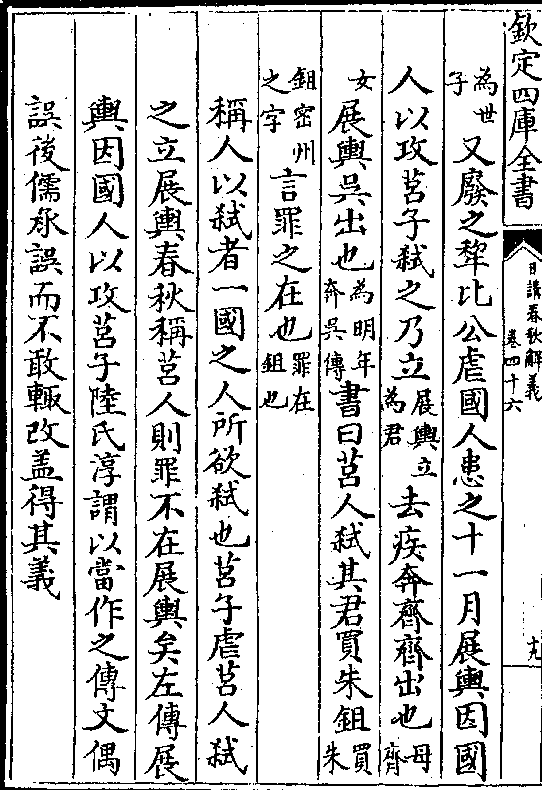 欽定四庫全書
日講春秋解義
卷四十六
十九
為世子又廢之犂比公虐國人患之十一月展輿因國
人以攻莒子弑之乃立展輿立為君去疾奔齊齊出也母齊
女展輿吳出也為明年奔吳傳書曰莒人弑其君買朱鉏買朱
鉏密州之字言罪之在也罪在鉏也
稱人以弑者一國之人所欲弑也莒子虐莒人弑
之立展輿春秋稱莒人則罪不在展輿矣左傳展
輿因國人以攻莒子陸氏淳謂以當作之傳文偶
誤後儒承誤而不敢輙改盖得其義